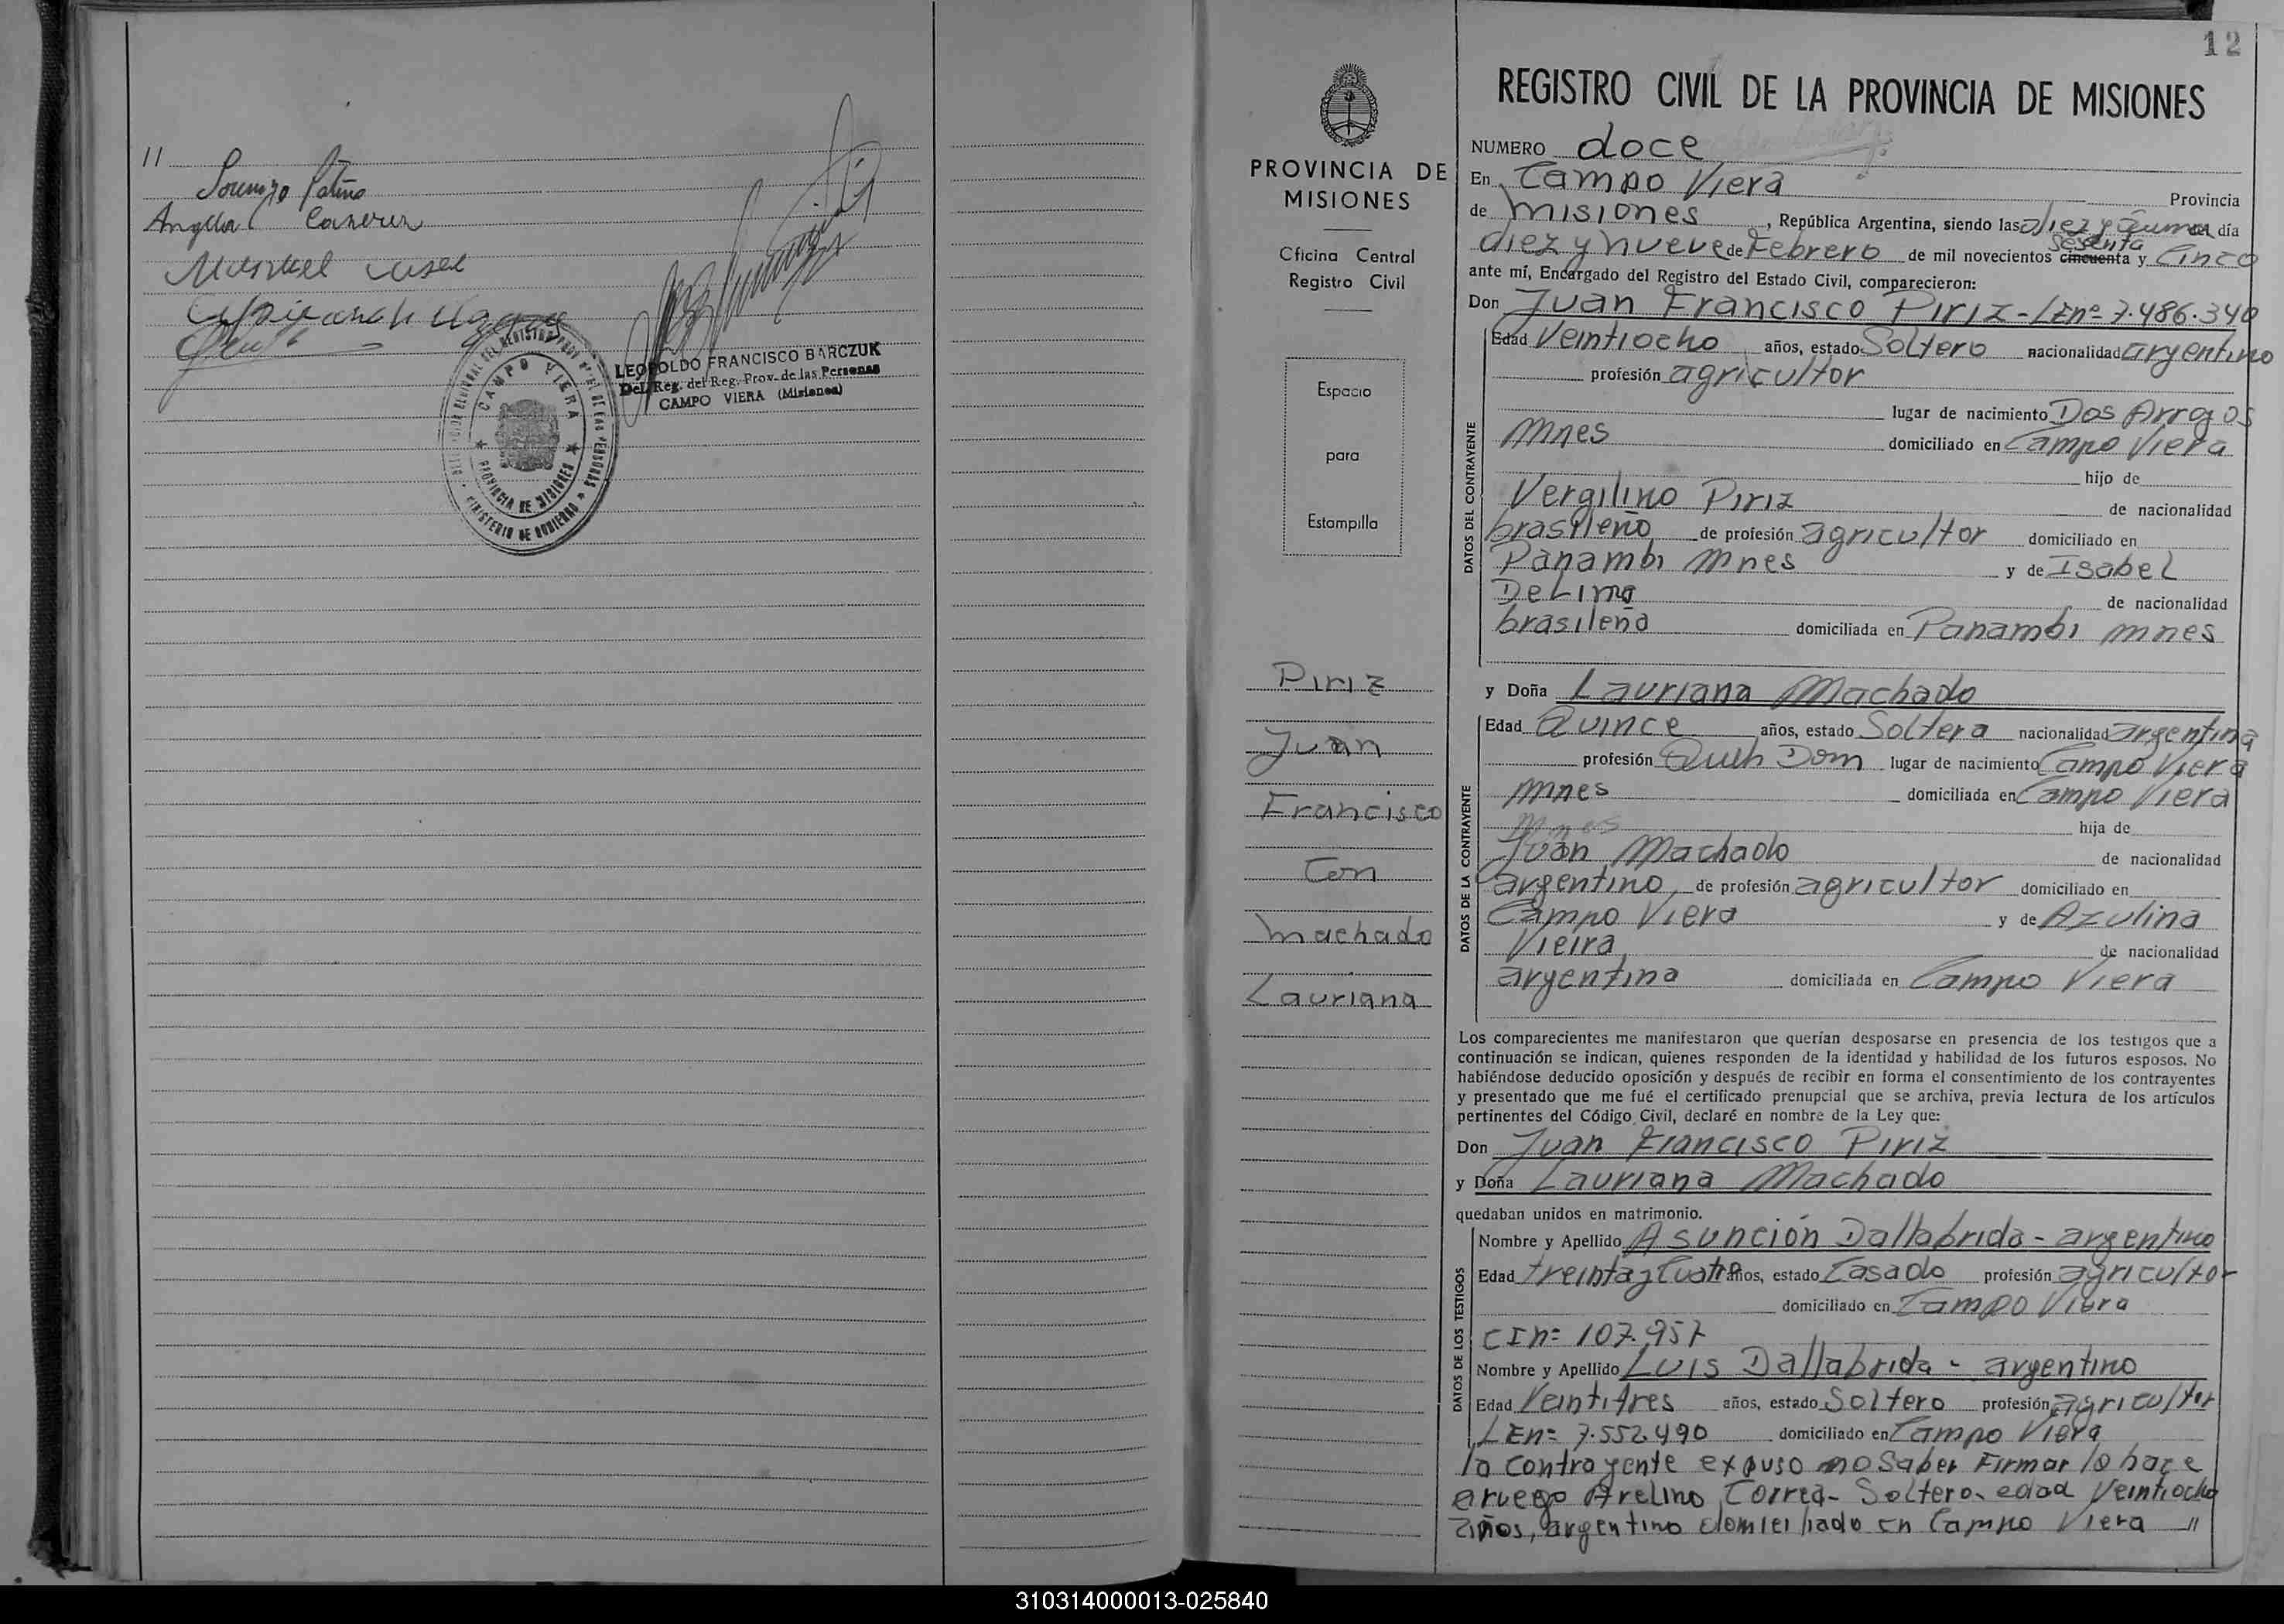 11
Angela
Manuel
LEOPOLDO FRANCISCO BARCZUK
Del. Reg. del Reg. Prov. de las Personas
CAMPO VIERA (Misiones)
CAMPO VIERA
PROVINCIA DE MISIONES
MINISTERIO DE GOBIERNO
12
PROVINCIA DE
MISIONES
Oficina Central
Registro Civil
Espacio
para
Estampilla
Piriz
Juan
Francisco
Con
Machado
Lauriana
REGISTRO CIVIL DE LA PROVINCIA DE MISIONES
NUMERO doce
En Campo Viera Provincia
de misiones, República Argentina, siendo las diez y día
sesenta
diez y nueve de Febrero de mil novecientos cincuenta y Cinco
ante mí, Encargado del Registro del Estado Civil, comparecieron:
Don Juan Francisco Piriz - LEnº 7.486.340
Edad Veintiocho años, estado Soltero nacionalidad argentino
profesión agricultor
lugar de nacimiento Dos Arroyos
Mnes domiciliado en Campo Viera
hijo de
Vergilino Piriz de nacionalidad
brasileño de profesión agricultor domiciliado en
Panambi Mnes y de Isabel
DeLima de nacionalidad
brasileña domiciliada en Panambi mnes
y Doña Lauriana Machado
Edad Quince años, estado Soltera nacionalidad argentina
profesión Queh Dom lugar de nacimiento Campo Viera
mnes domiciliada en Campo Viera
Mnes hija de
Juan Machado de nacionalidad
argentino, de profesión agricultor domiciliado en
Campo Viera y de Azulina
Vieira de nacionalidad
argentina domiciliada en Campo Viera
DATOS DEL CONTRAYENTE
DATOS DE LA CONTRAYENTE
Los comparecientes me manifestaron que querían desposarse en presencia de los testigos que a
continuación se indican, quienes responden de la identidad y habilidad de los futuros esposos. No
habiéndose deducido oposición y después de recibir en forma el consentimiento de los contrayentes
y presentado que me fué el certificado prenupcial que se archiva, previa lectura de los artículos
pertinentes del Código Civil, declaré en nombre de la Ley que:
Don Juan Francisco Piriz
y Doña Lauriana Machado
quedaban unidos en matrimonio.
DATOS DE LOS TESTIGOS
Nombre y Apellido Asunción Dallabrida - argentino
Edad treinta y Cuatro años, estado Casado profesión agricultor
domiciliado en Campo Viera
CIn= 107.957
Nombre y Apellido Luis Dallabrida - argentino
Edad Veintitres años, estado Soltero profesión agricultor
LEn= 7.552.490 domiciliado en Campo Viera
la contrayente expuso no Saber Firmar lo hace
aruego Avelino Correa - Soltero, edad Veintiocho
años, argentino domiciliado en Campo Viera //
310314000013-025840